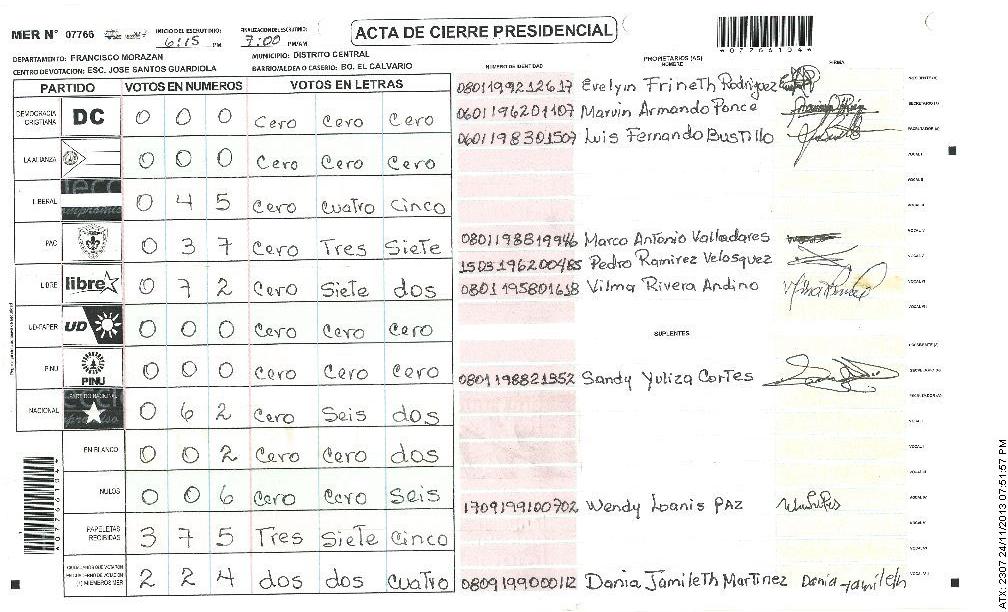 ACTA DE CIERRE PRESIDENCIAL
MER N° 07766
INICIO DEL ESCRUTINIO: 6:15 PM
FINALIZACION ESCRUTINIO: 7:00 PM/AM
*07766104*
DEPARTAMENTO: FRANCISCO MORAZAN
MUNICIPIO: DISTRITO CENTRAL
CENTRO DE VOTACION: ESC. JOSE SANTOS GUARDIOLA
BARRIO/ALDEA O CASERIO: BO. EL CALVARIO
PARTIDO VOTOS EN NUMEROS VOTOS EN LETRAS
DEMOCRACIA CRISTIANA DC 0 0 0 Cero Cero Cero
LA ALIANZA 0 0 0 Cero Cero Cero
LIBERAL 0 4 5 Cero Cuatro Cinco
PAC 0 3 7 Cero Tres Siete
LIBRE libre 0 7 2 Cero Siete dos
UD-FAPER UD 0 0 0 Cero Cero Cero
PINU PINU 0 0 0 Cero Cero Cero
NACIONAL PARTIDO NACIONAL 0 6 2 Cero Seis dos
EN BLANCO 0 0 2 Cero Cero dos
NULOS 0 0 6 Cero Cero Seis
PAPELETAS RECIBIDAS 3 7 5 Tres Siete Cinco
CIUDADANOS QUE VOTARON EN CUADERNO DE VOTACION (+) MIEMBROS MER 2 2 4 dos dos cuatro
NÚMERO DE IDENTIDAD PROPIETARIOS (AS) NOMBRE FIRMA
0801199212617 Evelyn Frineth Rodriguez PRESIDENTE (A)
0601196201107 Marvin Armando Ponce SECRETARIO (A)
0601198301507 Luis Fernando Bustillo ESCRUTADOR (A)
VOCAL I
VOCAL II
VOCAL III
0801198819946 Marco Antonio Valladares VOCAL IV
1503196200485 Pedro Ramirez Velosquez VOCAL V
0801195801618 Vilma Rivera Andino VOCAL VI
VOCAL VII
SUPLENTES
PRESIDENTE (A)
0801198821352 Sandy Yuliza Cortes SECRETARIO (A)
ESCRUTADOR (A)
VOCAL I
VOCAL II
VOCAL III
1709199100702 Wendy Loanis PAZ VOCAL IV
VOCAL V
VOCAL VI
0809199000112 Dania Jamileth Martinez Dania Jamileth VOCAL VII
*07766104*
ATX: 2307 24/11/2013 07:51:57 PM